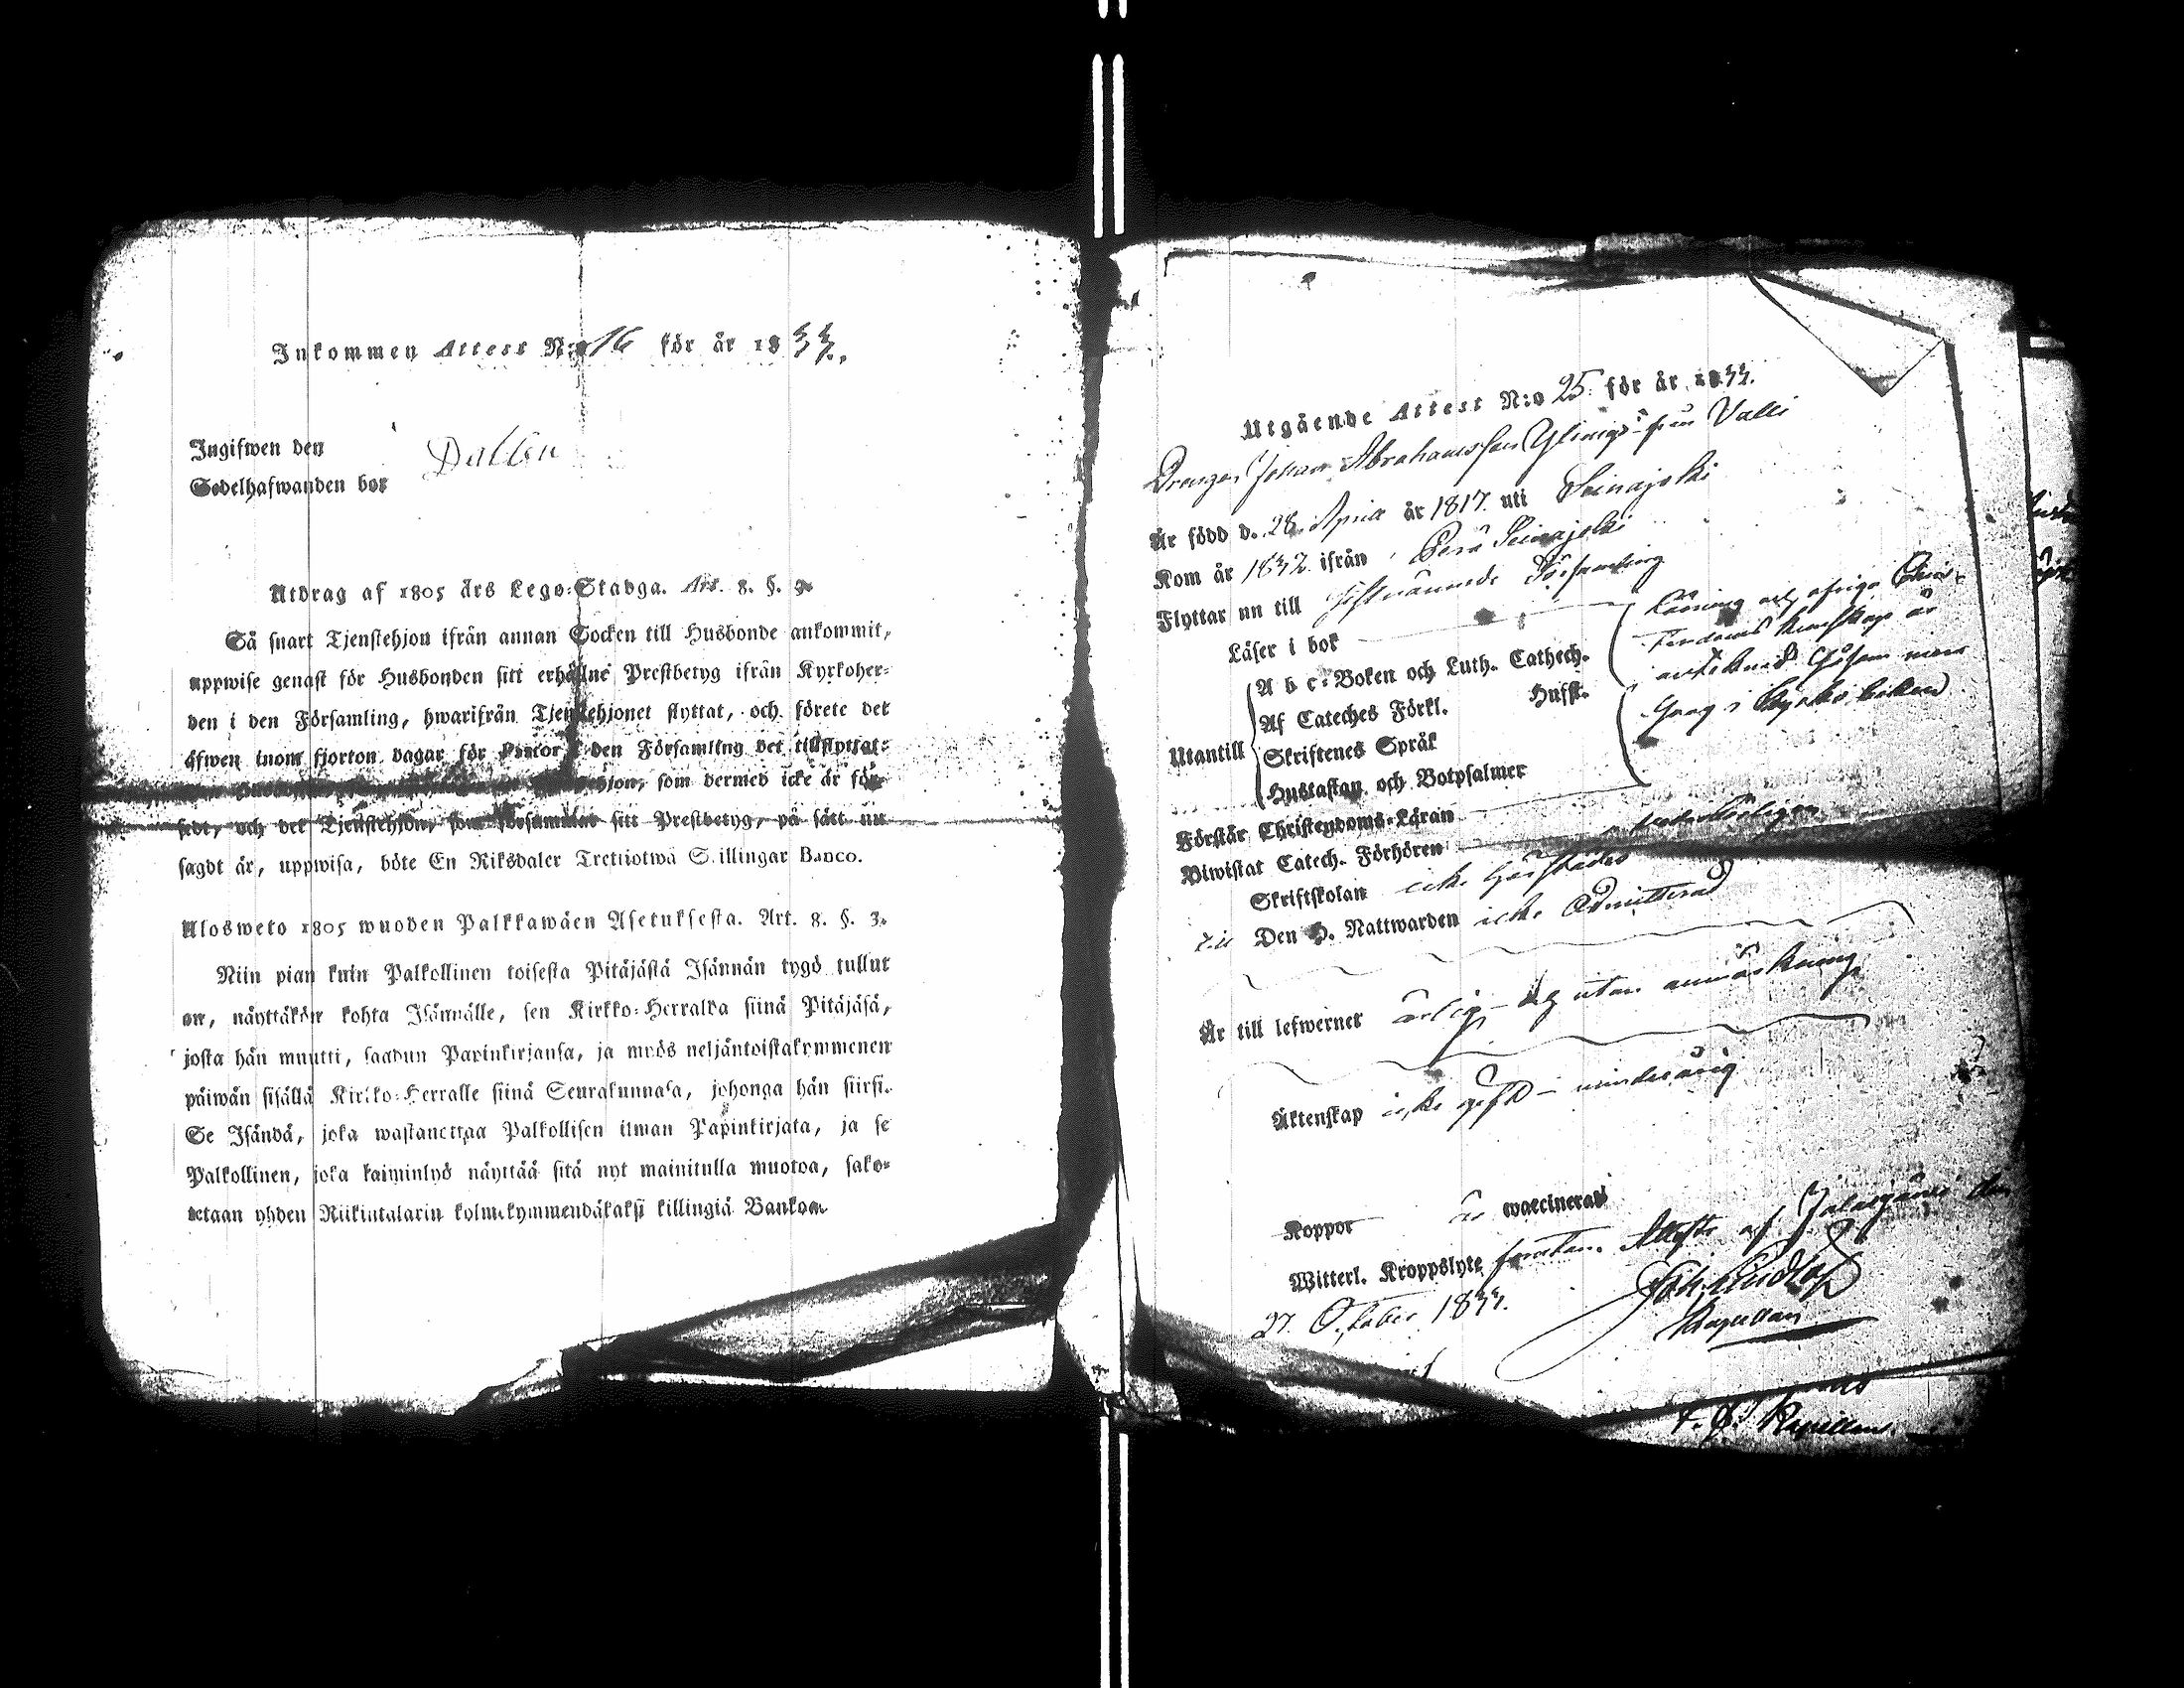 Inkommen Attest N:o 16 för år 1833.
Ingifwen den
Sedelhafwanden bor
Utdrag af 1805 års Lego-Stadga. Art. 8. §. 3.
Så snart Tjenstehjon ifrån annan Socken till Husbonde ankommit,
uppwise genast för Husbonden sitt erhållne Prestbetyg ifrån Kyrkoher-
den i den Församling, hwarifrån Tjenstehjonet flyttat, och förete det
äfwen inom fjorton dagar för Pastor i den Församling det tillflyttat:
som dermed icke är för-
sedt, och det Tjenstehjon, som försummar sitt Prestbetyg, på sätt nu
sagdt är, uppwisa, böte En Riksdaler Trettiotwå Skillingar Banco.
Ulosweto 1805 wuoden Palkkawäen Asetuksesta. Art. 8. §. 3.
Niin pian kuin Palkollinen toisesta Pitäjästä Isännän tygö tullut
on, näyttäkön kohta Isännälle, sen Kirkko-Herralda siinä Pitäjäsä,
josta hän muutti, saadun Papinkirjansa, ja myös neljäntoistakymmenen
päiwän sisällä Kirkko-Herralle siinä Seurakunnasa, johonga hän siirsi.
Se Isändä, joka wastanottaa Palkollisen ilman Papinkirjata, ja se
Palkollinen, joka laiminlyö näyttää sitä nyt mainitulla muotoa, sako-
tetaan yhden Riikintalarin kolmekymmendäkaksi killingiä Bankoa.
Utgående Attest N:o 25 för år 1833.
Drengen Johan Abrahamsson från Valli
Är född d. 28 April år 1817 uti Seinäjoki
Kom år 1832 ifrån Perä Seinäjoki
Flyttar nu till sistnämnde Församling
Läser i bok
A b c-Boken och Luth. Cathech.
Af Cateches Förkl. Husfl.
Utantill
Skriftenes Språk
Hustaflan och Botpsalmer
Läsning och öfrige Chri-
stendoms kunskap är
antecknad såsom
i Kyrkoboken
Förstår Christendoms-Läran
Biwistat Catech. Förhören
Skriftskolan icke
till Den H. Nattwarden icke Admitterad
Är till lefwernet ärlig och utan anmärkning
Äktenskap icke gift - minderårig
Koppor är waccinerad
Witterl. Kroppslyte förutan. Attest af Jalasjärvi den
27 October 1833.
Kapellan
Kapellan